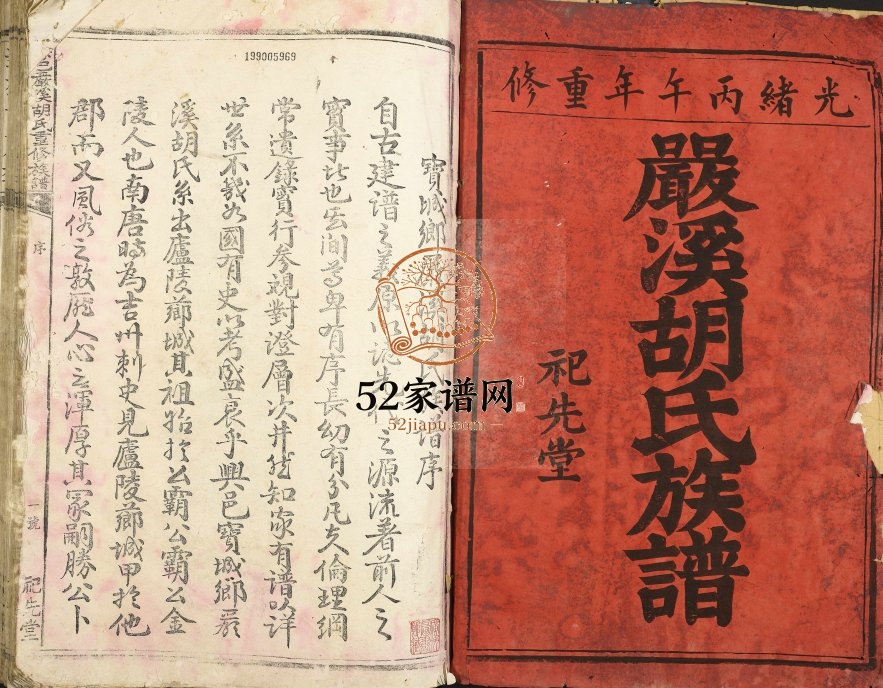 光緒丙午年重修
嚴溪胡氏族譜
祀先堂
199005969
寶城鄉嚴溪胡氏譜序
自古建譜之義原以誌先代之源流著前人之
實事比也去间尊卑有序長幼有分凡夫倫理綱
常遺錄實行参視對澄層次井然知家有譜以詳
世系不幾如國有史以考盛衰乎興邑寶城鄉嚴
溪胡氏系出廬陵薌城其祖始於公霸公霸公金
陵人也南唐時為吉州刺史見廬陵薌城甲於他
郡而又風俗之敦龐人心之渾厚其冢嗣勝公卜
邑嚴溪胡氏重修族譜
序
一號
祀先堂
52家谱网
52jiapu.com